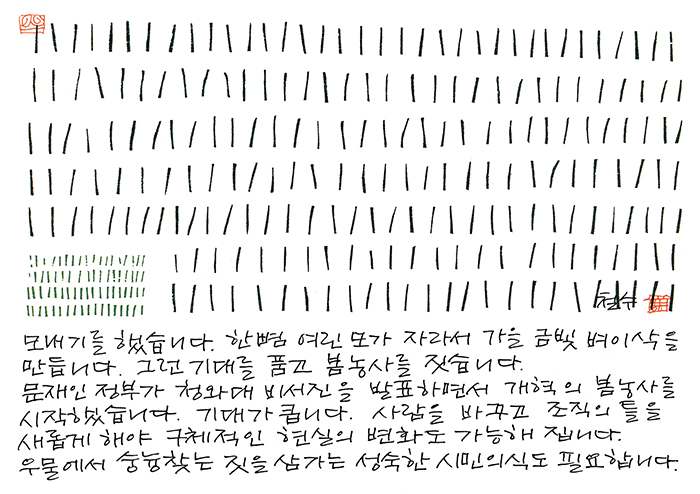 철수
모내기를 했습니다. 한뼘 여린 모가 자라서 가을 금빛 벼이삭을
만듭니다. 그런 기대를 품고 봄농사를 짓습니다.
문재인 정부가 청와대 비서진을 발표하면서 개혁의 봄농사를
시작했습니다. 기대가 큽니다. 사람을 바꾸고 조직의 틀을
새롭게 해야 구체적인 현실의 변화도 가능해 집니다.
우물에서 숭늉찾는 짓을 삼가는 성숙한 시민의식도 필요합니다.